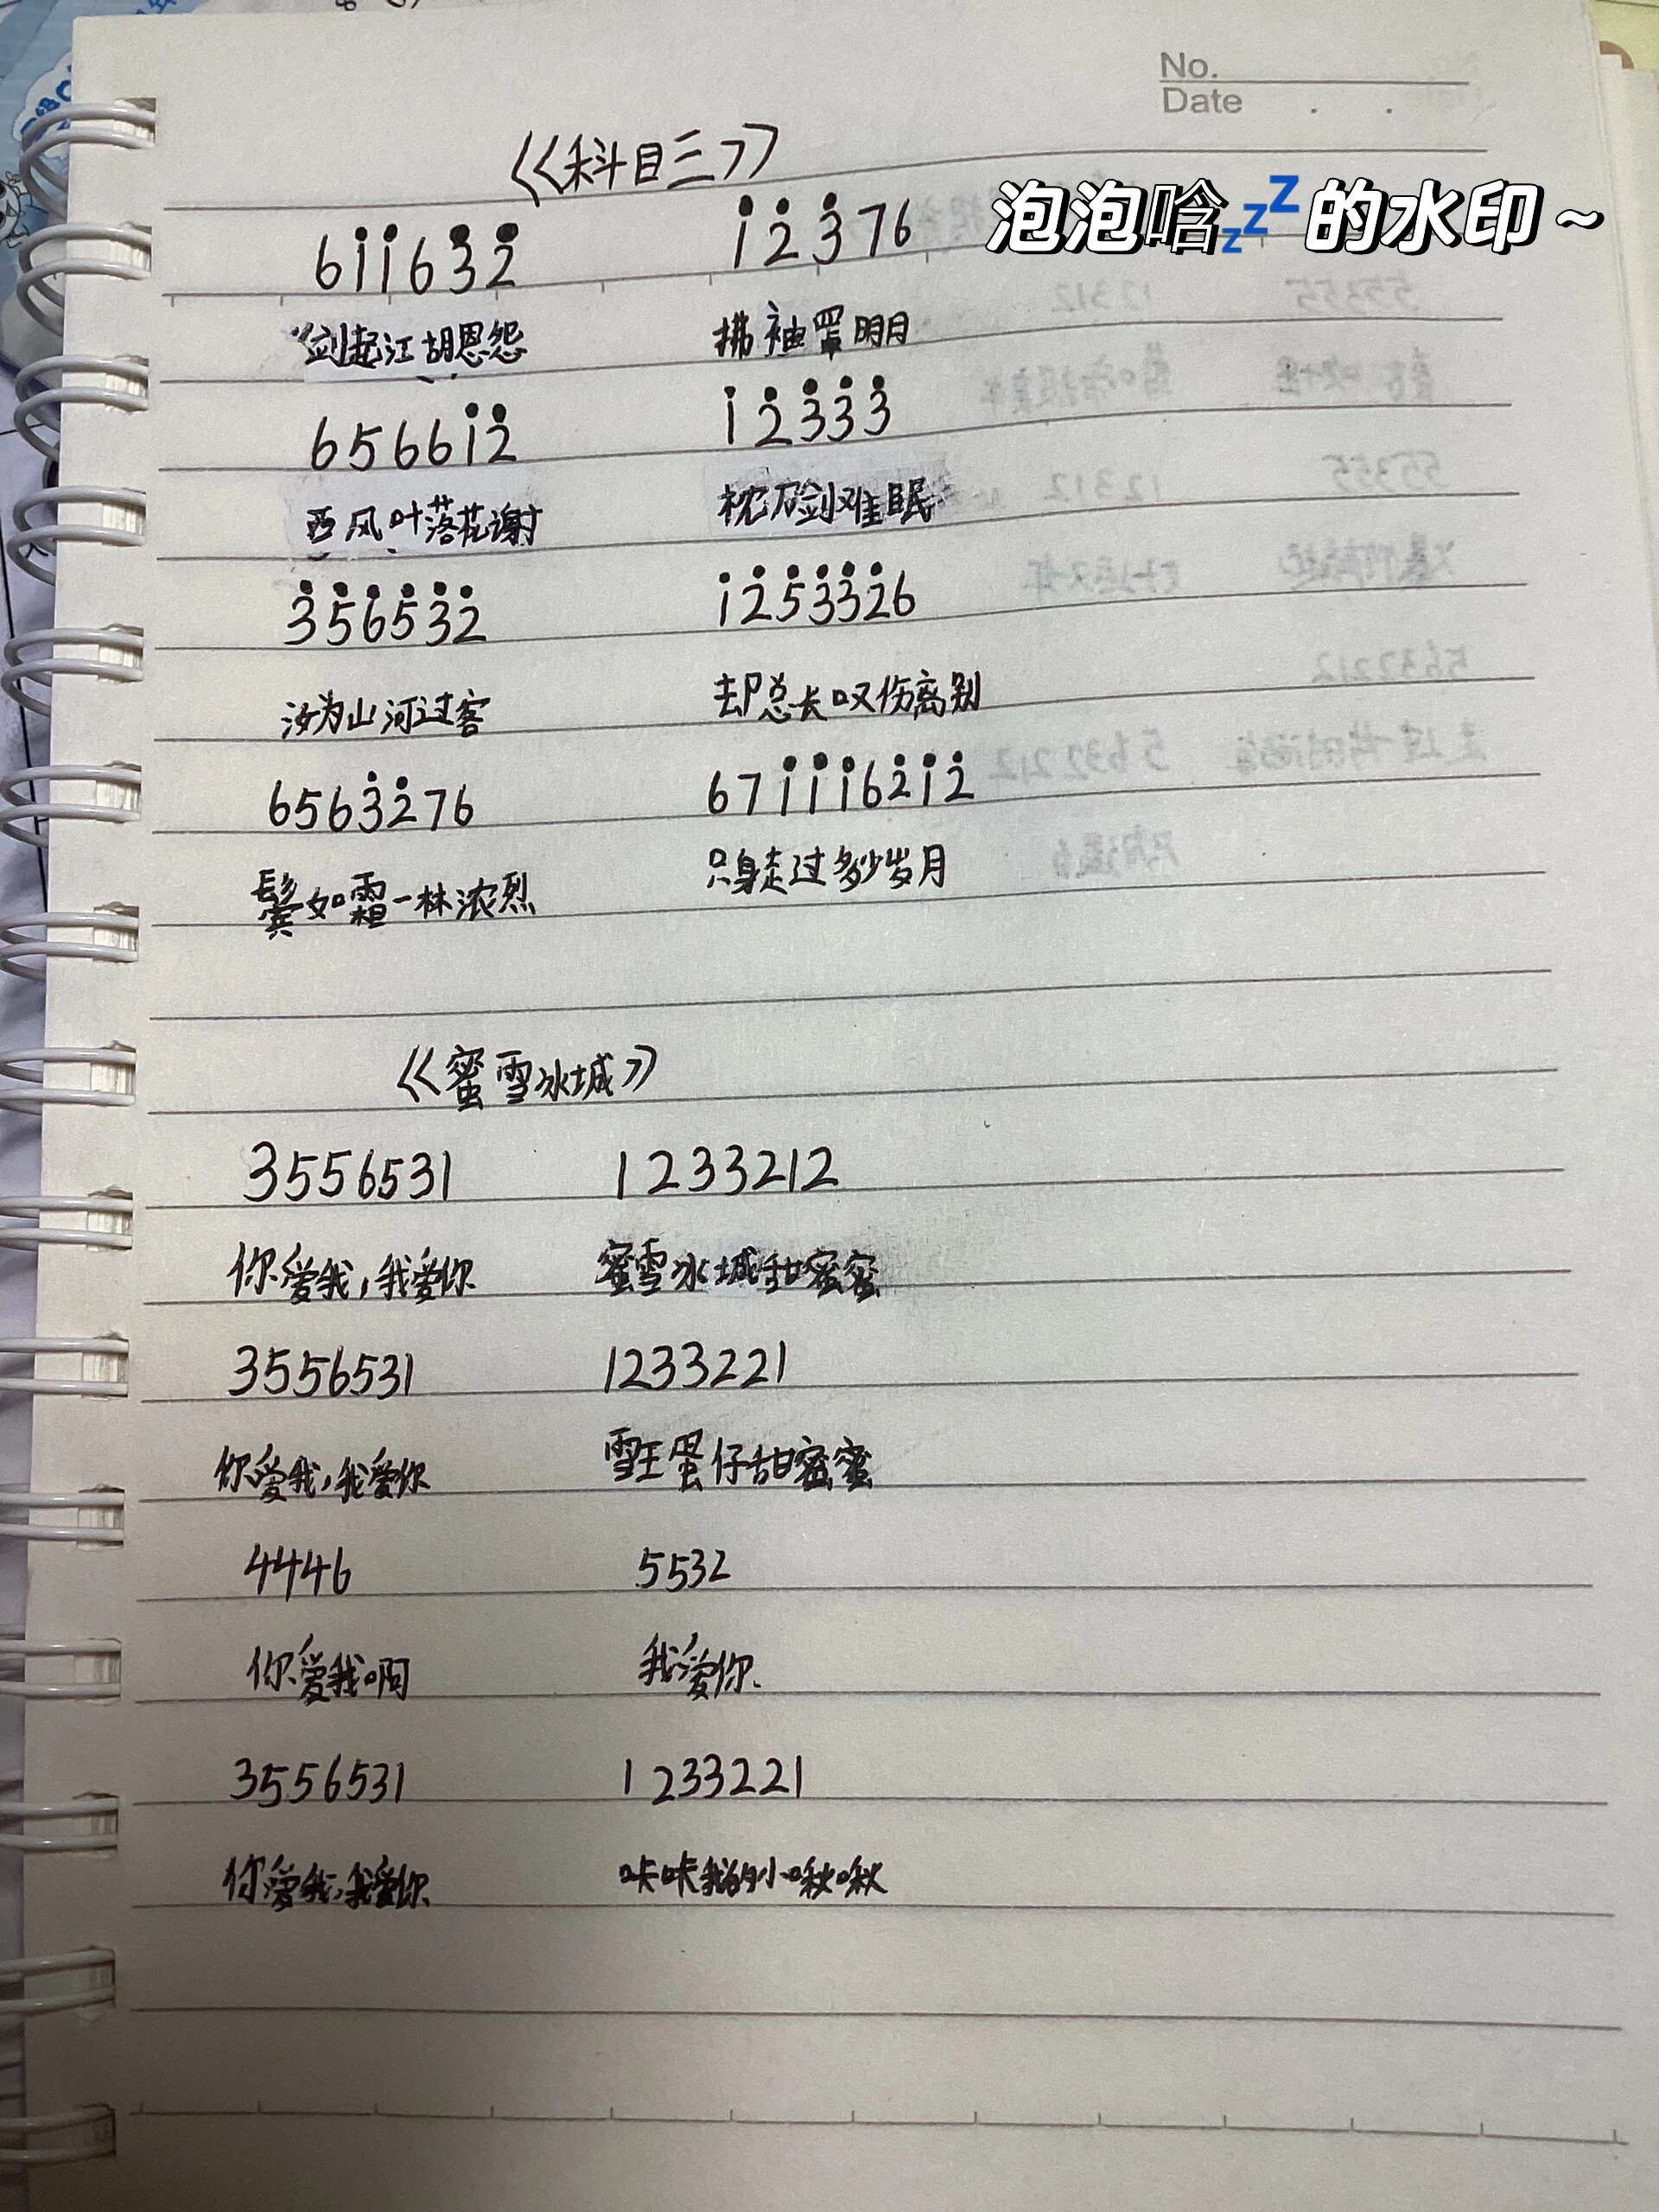 No.
Date . .
《科目三》
泡泡唅💤的水印～
6i̇i̇63̇2̇ i̇2̇3̇76
剑起江胡恩怨 拂袖罩明月
6566i̇2̇ i̇2̇3̇3̇3̇
西风叶落花谢 枕刀剑难眠
3̇5̇6̇5̇3̇2̇ i̇2̇5̇3̇3̇2̇6
汝为山河过客 却总长叹伤离别
6563̇2̇76 67i̇i̇i̇62̇i̇2̇
鬓如霜一林浓烈 只身走过多少岁月
《蜜雪冰城》
3556531 1233212
你爱我，我爱你 蜜雪冰城甜蜜蜜
3556531 1233221
你爱我，我爱你 雪王蛋仔甜蜜蜜
4446 5532
你爱我啊 我爱你
3556531 1233221
你爱我，我爱你 咔咔我的小啾啾